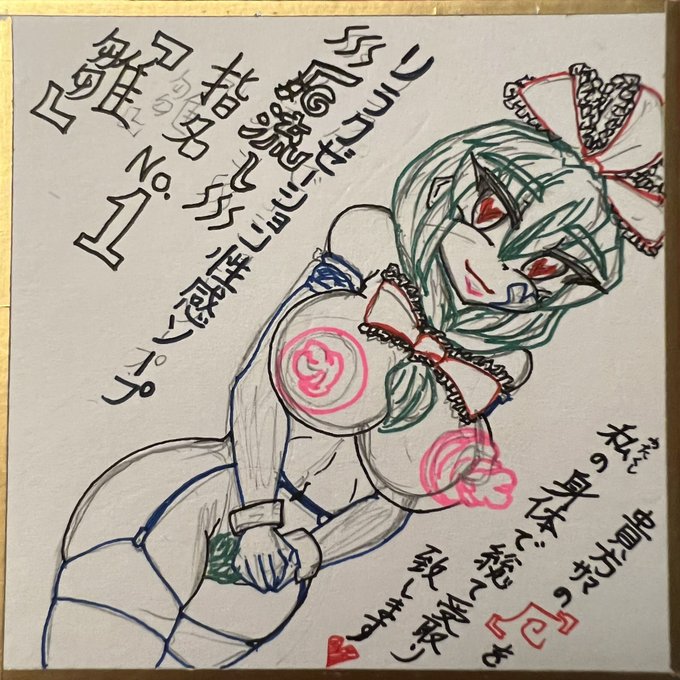 リラクゼーション性感ソープ
『厄流し』
指名No.1
『雛』
貴方サマの『厄』を
私の身体で総て受取り
致します♥